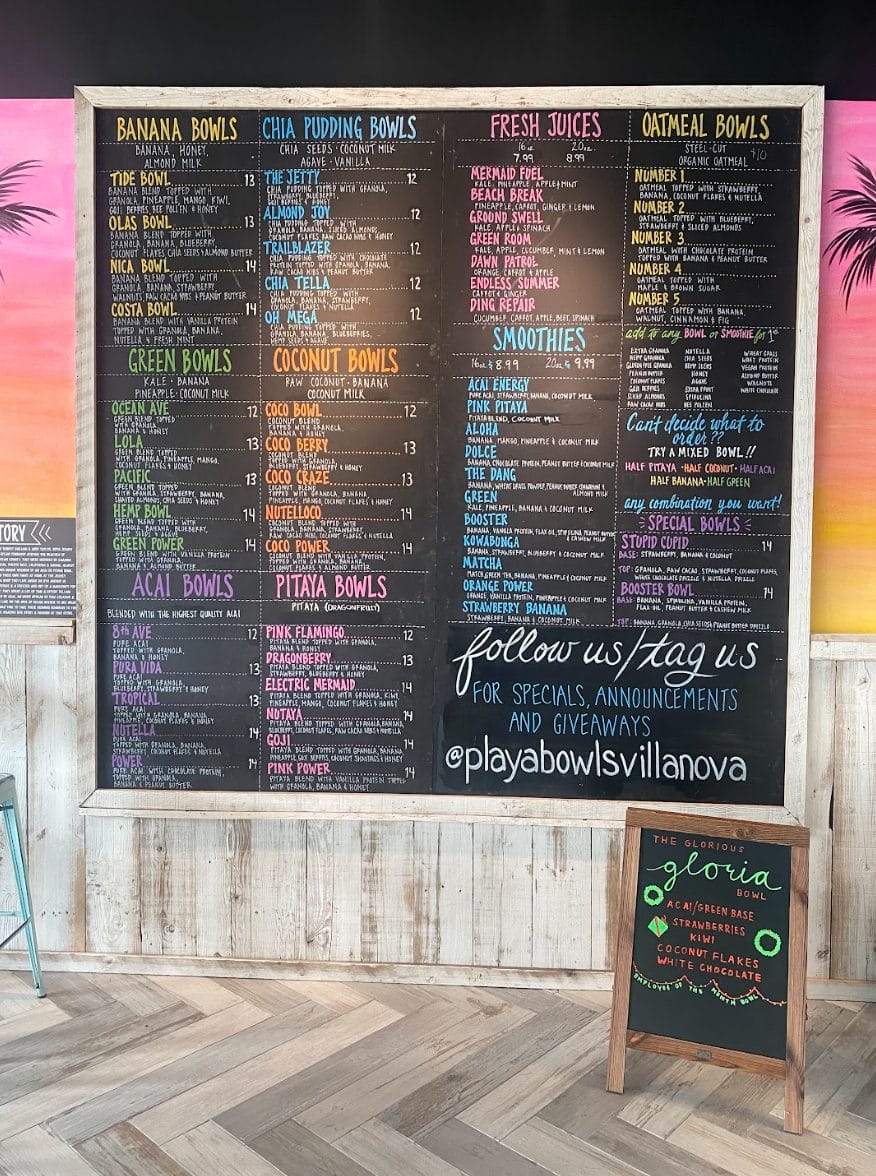 BANANA BOWLS
BANANA, HONEY,
ALMOND MILK
TIDE BOWL 13
BANANA BLEND TOPPED WITH
GRANOLA, PINEAPPLE, MANGO, KIWI,
GOJI BERRIES, BEE POLLEN & HONEY
OLAS BOWL 13
BANANA BLEND TOPPED WITH
GRANOLA, BANANA, BLUEBERRY,
COCONUT FLAKES CHIA SEEDS & ALMOND BUTTER
NICA BOWL 14
BANANA BLEND TOPPED WITH
GRANOLA, BANANA, STRAWBERRY,
WALNUTS, RAW CACAO NIBS & PEANUT BUTTER
COSTA BOWL 14
BANANA BLEND WITH VANILLA PROTEIN
TOPPED WITH GRANOLA, BANANA,
NUTELLA & FRESH MINT
GREEN BOWLS
KALE · BANANA
PINEAPPLE · COCONUT MILK
OCEAN AVE 12
GREEN BLEND TOPPED
WITH GRANOLA,
BANANA & HONEY
LOLA 13
GREEN BLEND TOPPED
WITH GRANOLA, PINEAPPLE, MANGO,
COCONUT FLAKES & HONEY
PACIFIC 13
GREEN BLEND TOPPED
WITH GRANOLA, STRAWBERRY, BANANA,
SHAVED ALMONDS, CHIA SEEDS & HONEY
HEMP BOWL 14
GREEN BLEND TOPPED WITH
GRANOLA, BANANA, BLUEBERRY,
HEMP SEEDS & AGAVE
GREEN POWER 14
GREEN BLEND W/ VANILLA PROTEIN
TOPPED WITH GRANOLA,
BANANA, COCONUT FLAKES & HONEY
ACAI BOWLS
BLENDED WITH THE HIGHEST QUALITY ACAI
8th AVE 12
PURE ACAI
TOPPED WITH GRANOLA,
BANANA & HONEY
PURA VIDA 13
PURE ACAI
TOPPED WITH GRANOLA,
BLUEBERRY, STRAWBERRY & HONEY
TROPICAL 13
PURE ACAI
TOPPED WITH GRANOLA BANANA,
PINEAPPLE, COCONUT FLAKES & HONEY
NUTELLA 14
PURE ACAI
TOPPED WITH GRANOLA, BANANA,
STRAWBERRY, COCONUT FLAKES & NUTELLA
POWER 14
PURE ACAI WITH CHOCOLATE PROTEIN,
TOPPED WITH GRANOLA,
BANANA & PEANUT BUTTER
CHIA PUDDING BOWLS
CHIA SEEDS · COCONUT MILK
AGAVE · VANILLA
THE JETTY 12
CHIA PUDDING TOPPED WITH GRANOLA,
STRAWBERRY, BLUEBERRY,
GOJI BERRIES & HONEY
ALMOND JOY 12
CHIA PUDDING TOPPED WITH
GRANOLA, BANANA, SLICED ALMONDS,
COCONUT FLAKES RAW CACAO NIBS & HONEY
TRAILBLAZER 12
CHIA PUDDING WITH CHOCOLATE
PROTEIN TOPPED WITH GRANOLA, BANANA,
RAW CACAO NIBS & PEANUT BUTTER
CHIA TELLA 12
CHIA PUDDING TOPPED WITH
GRANOLA, BANANA, STRAWBERRY,
COCONUT FLAKES & NUTELLA
OH MEGA 12
CHIA PUDDING TOPPED WITH
GRANOLA, BANANA, BLUEBERRIES,
HEMP SEEDS & AGAVE
COCONUT BOWLS
RAW COCONUT · BANANA
COCONUT MILK
COCO BOWL 12
COCONUT BLEND
TOPPED WITH GRANOLA,
BANANA & HONEY
COCO BERRY 13
COCONUT BLEND
TOPPED WITH GRANOLA,
BLUEBERRY, STRAWBERRY & HONEY
COCO CRAZE 13
COCONUT BLEND
TOPPED WITH GRANOLA, BANANA,
PINEAPPLE, MANGO, COCONUT FLAKES & HONEY
NUTELLOCO 14
COCONUT BLEND TOPPED WITH
GRANOLA, BANANA, STRAWBERRY,
RAW CACAO NIBS, COCONUT FLAKES & NUTELLA
COCO POWER 14
COCONUT BLEND WITH VANILLA PROTEIN,
TOPPED WITH GRANOLA, BANANA,
COCONUT FLAKES & ALMOND BUTTER
PITAYA BOWLS
PITAYA (DRAGONFRUIT)
PINK FLAMINGO 12
PITAYA BLEND TOPPED WITH GRANOLA,
BANANA & HONEY
DRAGONBERRY 13
PITAYA BLEND TOPPED WITH GRANOLA,
STRAWBERRY, BLUEBERRY & HONEY
ELECTRIC MERMAID 14
PITAYA BLEND TOPPED WITH GRANOLA, KIWI,
PINEAPPLE, MANGO, COCONUT FLAKES & HONEY
NUTAYA 14
PITAYA BLEND TOPPED WITH GRANOLA, BANANA,
BLUEBERRY, COCONUT FLAKES, RAW CACAO NIBS & NUTELLA
GOJI 14
PITAYA BLEND TOPPED WITH GRANOLA, BANANA
PINEAPPLE, GOJI BERRIES, COCONUT SHAVINGS & HONEY
PINK POWER 14
PITAYA BLEND WITH VANILLA PROTEIN TOPPED
WITH GRANOLA, BANANA & HONEY
FRESH JUICES
16oz 20oz
7.99 8.99
MERMAID FUEL
KALE, PINEAPPLE, APPLE & MINT
BEACH BREAK
PINEAPPLE, CARROT, GINGER & LEMON
GROUND SWELL
KALE, APPLE & SPINACH
GREEN ROOM
KALE, APPLE, CUCUMBER, MINT & LEMON
DAWN PATROL
ORANGE, CARROT & APPLE
ENDLESS SUMMER
CARROT & GINGER
DING REPAIR
CUCUMBER, CARROT, APPLE, BEET, SPINACH
SMOOTHIES
16oz $8.99 20oz $9.99
ACAI ENERGY
PURE ACAI, STRAWBERRY, BANANA, COCONUT MILK
PINK PITAYA
PITAYA BLEND, COCONUT MILK
ALOHA
BANANA, MANGO, PINEAPPLE & COCONUT MILK
DOLCE
BANANA, CHOCOLATE PROTEIN, PEANUT BUTTER & COCONUT MILK
THE DANG
BANANA, WHEAT GRASS POWDER, PEANUT BUTTER, CINNAMON &
ALMOND MILK
GREEN
KALE, PINEAPPLE, BANANA & COCONUT MILK
BOOSTER
BANANA, VANILLA PROTEIN, FLAX OIL, SPIRULINA, PEANUT BUTTER
& CASHEW MILK
KOWABONGA
BANANA, STRAWBERRY, BLUEBERRY & COCONUT MILK
MATCHA
MATCHA GREEN TEA, BANANA, PINEAPPLE & COCONUT MILK
ORANGE POWER
ORANGE, VANILLA PROTEIN, PINEAPPLE & COCONUT MILK
STRAWBERRY BANANA
STRAWBERRY, BANANA & COCONUT MILK
OATMEAL BOWLS
STEEL-CUT
ORGANIC OATMEAL $10
NUMBER 1
OATMEAL TOPPED WITH STRAWBERRY,
BANANA, COCONUT FLAKES & NUTELLA
NUMBER 2
OATMEAL TOPPED WITH BLUEBERRY,
STRAWBERRY & SLICED ALMONDS
NUMBER 3
OATMEAL WITH CHOCOLATE PROTEIN
TOPPED WITH BANANA & PEANUT BUTTER
NUMBER 4
OATMEAL TOPPED WITH
MAPLE & BROWN SUGAR
NUMBER 5
OATMEAL TOPPED WITH BANANA,
WALNUT, CINNAMON & FIG
add to any BOWL or SMOOTHIE for
EXTRA GRANOLA NUTELLA WHEAT GRASS
HEMP GRANOLA CHIA SEEDS WHEY PROTEIN
GLUTEN FREE GRANOLA HEMP SEEDS VEGAN PROTEIN
PEANUT BUTTER HONEY ALMOND BUTTER
COCONUT FLAKES AGAVE WALNUTS
GOJI BERRIES EXTRA FRUIT WHITE CHOCOLATE
SLICED ALMONDS SPIRULINA
RAW CACAO NIBS BEE POLLEN
Can't decide what to
order??
TRY A MIXED BOWL!!
HALF PITAYA · HALF COCONUT · HALF ACAI
HALF BANANA · HALF GREEN
any combination you want!
SPECIAL BOWLS
STUPID CUPID 14
BASE: STRAWBERRY, BANANA & COCONUT
TOP: GRANOLA, RAW CACAO, STRAWBERRY, COCONUT FLAKES,
WHITE CHOCOLATE DRIZZLE & NUTELLA DRIZZLE
BOOSTER BOWL 14
BASE: BANANA, SPIRULINA, VANILLA PROTEIN,
FLAX OIL, PEANUT BUTTER & CASHEW MILK
TOP: BANANA, GRANOLA, CHIA SEEDS & PEANUT BUTTER DRIZZLE
follow us/tag us
FOR SPECIALS, ANNOUNCEMENTS
AND GIVEAWAYS
@playabowlsvillanova
TORY
THE GLORIOUS
gloria
BOWL
ACAI/GREEN BASE
STRAWBERRIES
KIWI
COCONUT FLAKES
WHITE CHOCOLATE
EMPLOYEE OF THE MONTH BOWL